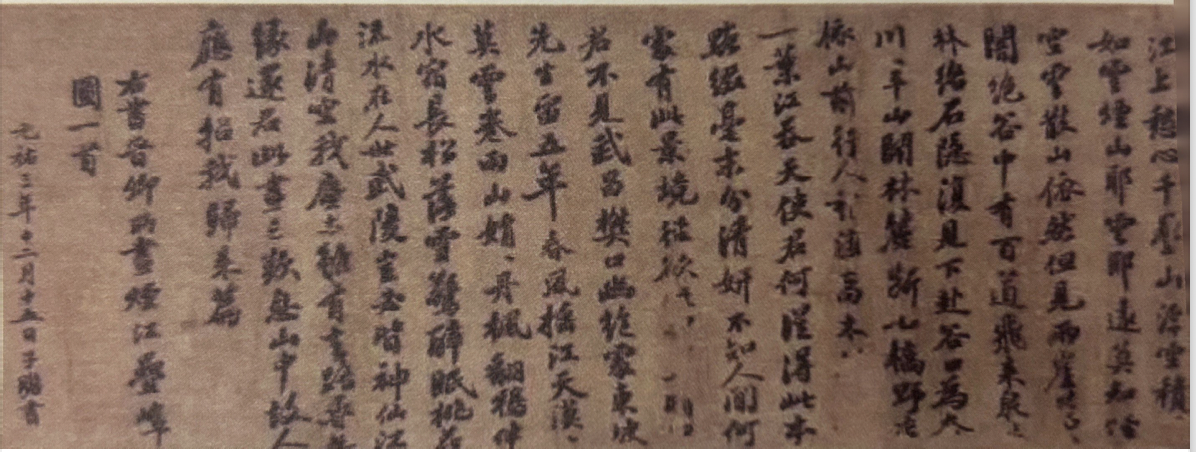 江上愁心千疊山浮空積
如雲煙山耶雲耶遠莫知煙
空雲散山依然但見兩崖蒼〃
闇絕谷中有百道飛來泉
林絡石隱復見下赴谷口為
川〃平山開林麓斷小橋野店
依山前行人稍度喬木
一葉江吞天使君何從得此本
點綴毫末分清妍不知人間何
處有此景境
君不見武昌樊口幽絕處東坡
先生留五年春風搖江天漠〃
莫雲卷雨山娟〃丹楓翻鴉伴
水宿長松落雪驚醉眠桃花
流水在人世武陵豈必皆神仙江
山清空我塵土雖有去路尋無
緣還君此畫三歎息山中故人
應有招我歸來篇
右書晉卿所畫煙江疊嶂
圖一首
元祐三年十二月十五日子瞻書